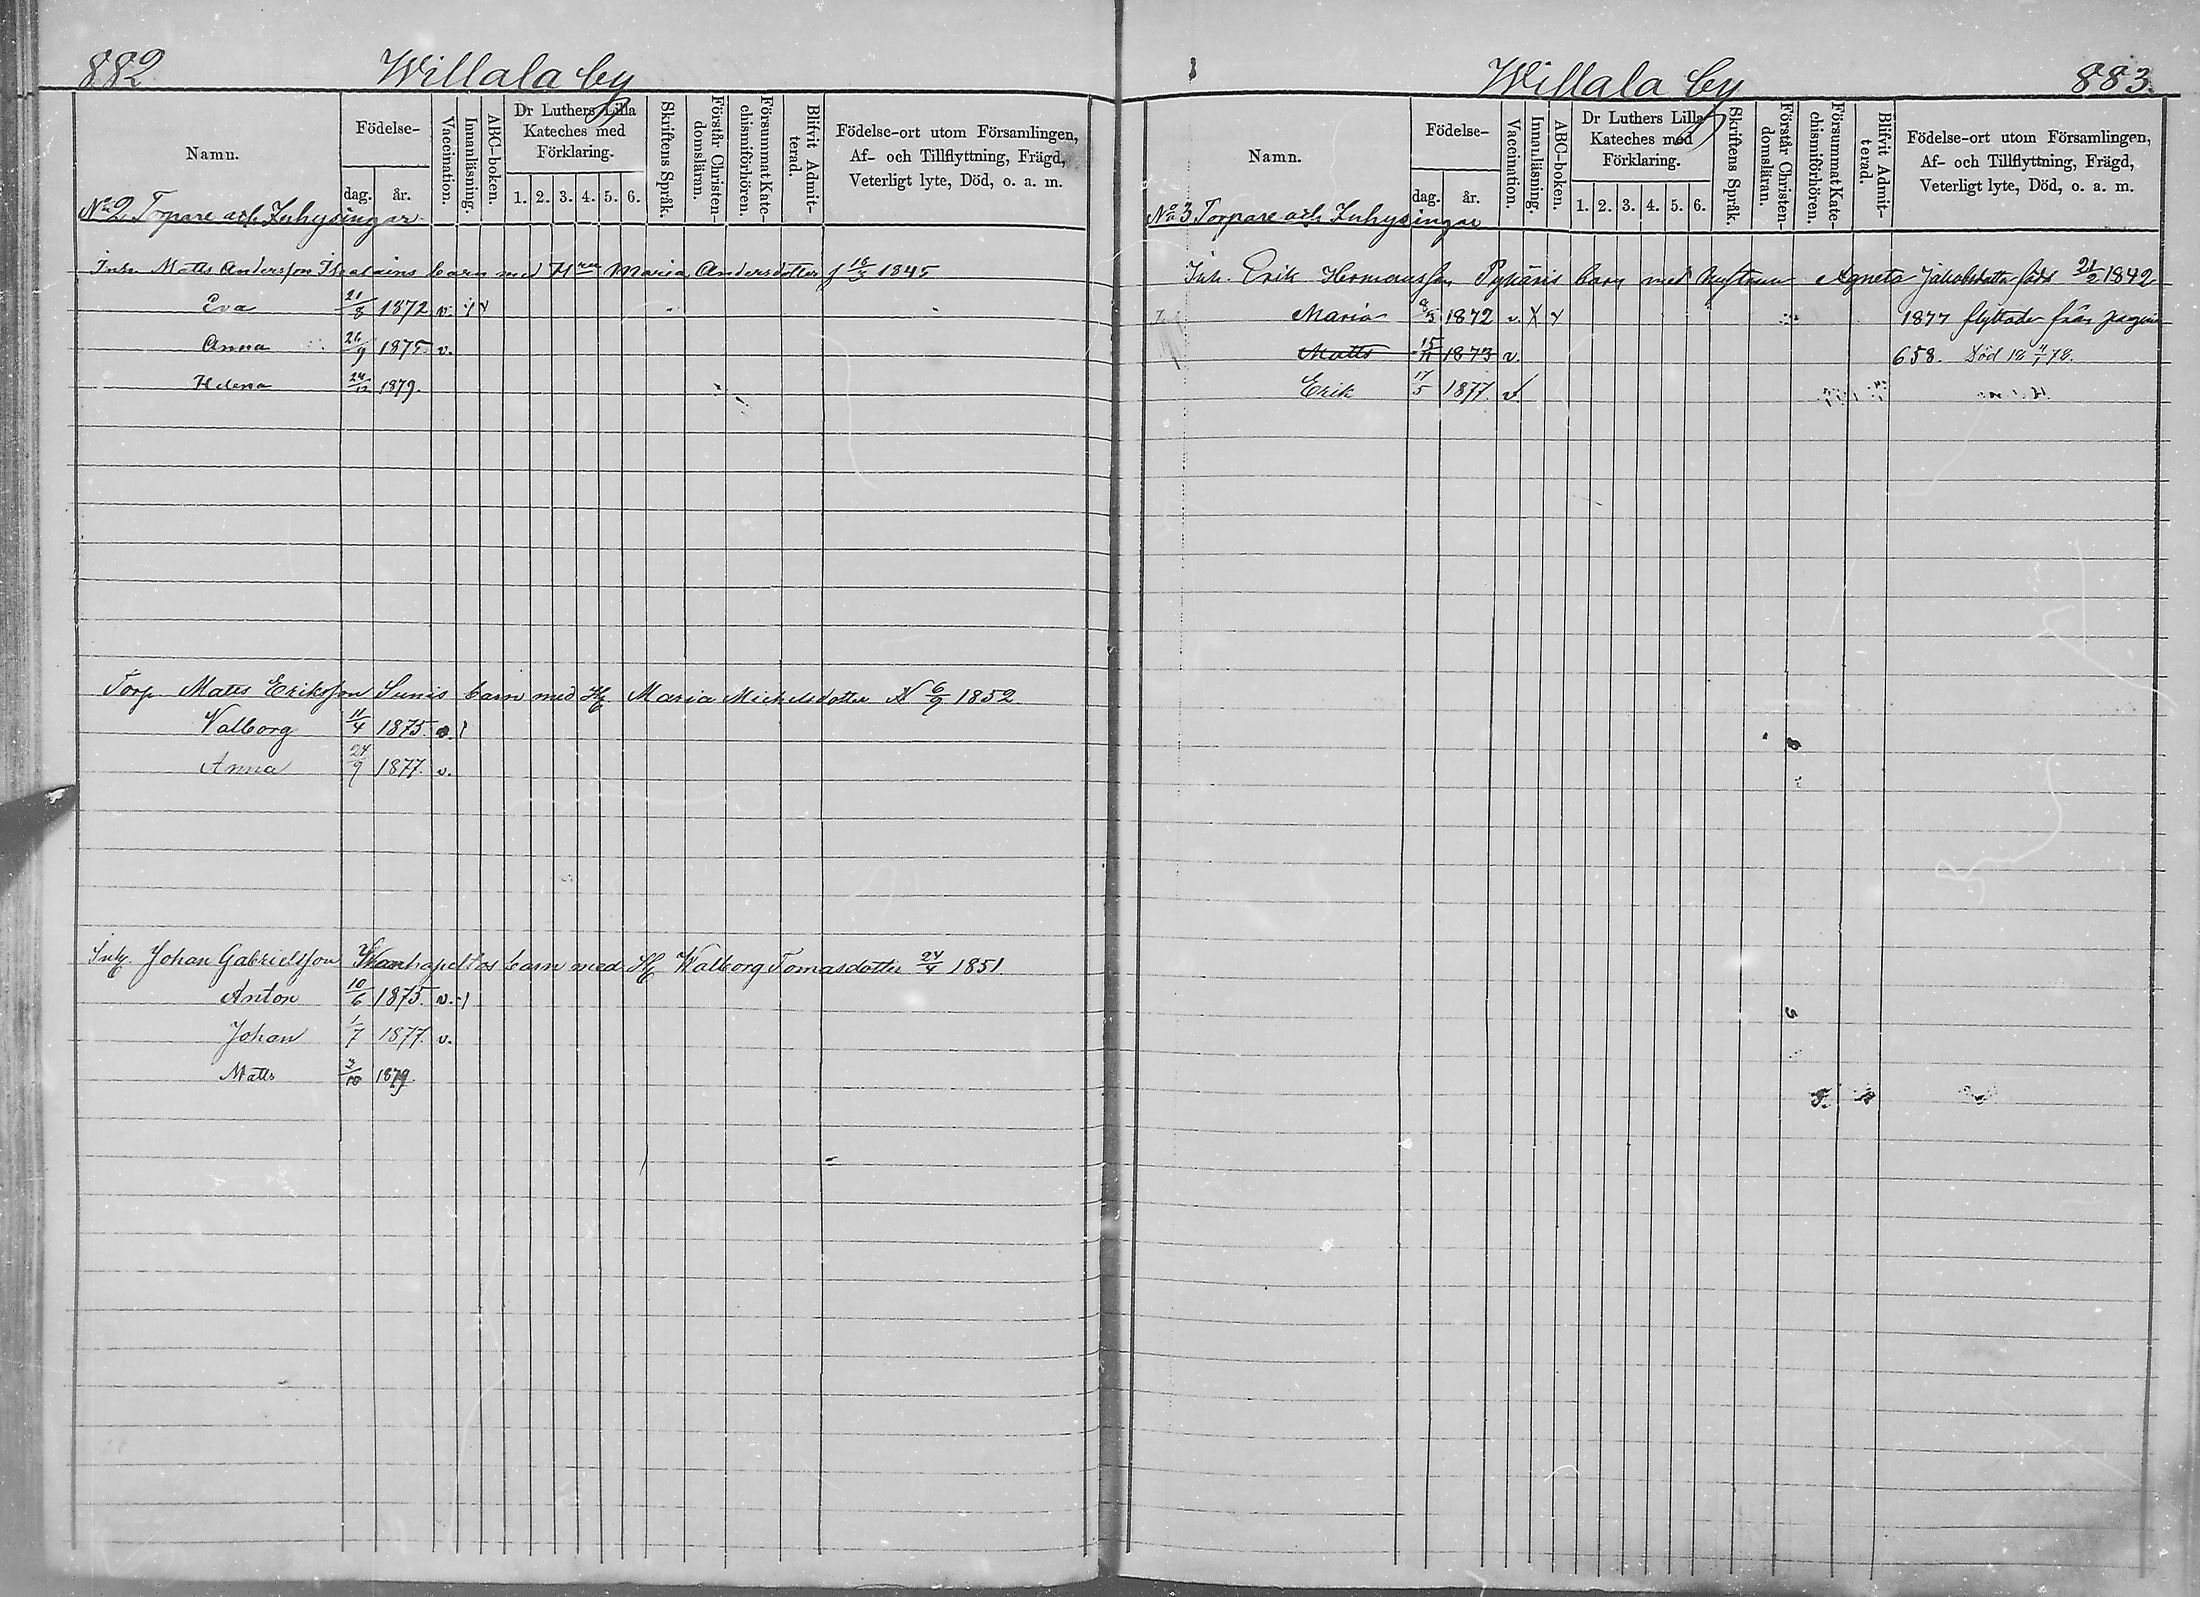 882 Willala by
Namn. Födelse- dag. år. Vaccination. Innanläsning. ABC-boken. Dr Luthers Lilla Kateches med Förklaring. 1. 2. 3. 4. 5. 6. Skriftens Språk. Förstår Christendomsläran. Försummat Katechismiförhören. Blifvit Admitterad. Födelse-ort utom Församlingen, Af- och Tillflyttning, Frägd, Veterligt lyte, Död, o. a. m.
No 2 Torpare och Inhysingar
Inh. Matts Andersson barn med Hru Maria Andersdotter f 1845
Eva 21/8 1872 v.
Anna 26/9 1875. v.
Helena 24/12 1879.
Torp. Matts Eriksson Sunis barn med H. Maria Michelsdotter 6/9 1852
Valborg 11/4 1875. v.
Anna 24/9 1877. v.
Inh. Johan Gabrielsson barn med H. Walborg Tomasdotter 24/4 1851
Anton 10/6 1875. v.
Johan 1/7 1877. v.
Matts 3/10 1879.
Willala by 883.
Namn. Födelse- dag. år. Vaccination. Innanläsning. ABC-boken. Dr Luthers Lilla Kateches med Förklaring. 1. 2. 3. 4. 5. 6. Skriftens Språk. Förstår Christendomsläran. Försummat Katechismiförhören. Blifvit Admitterad. Födelse-ort utom Församlingen, Af- och Tillflyttning, Frägd, Veterligt lyte, Död, o. a. m.
No 3 Torpare och Inhysingar
Inh. Erik Hermansson barn med hustrun Agneta Jakobsdotter född 21/2 1842
Maria 1872 v. 1877 flyttade från pagina
Matts 15/11 1873 v. 658. Död 18 78.
Erik 17/5 1877. v.